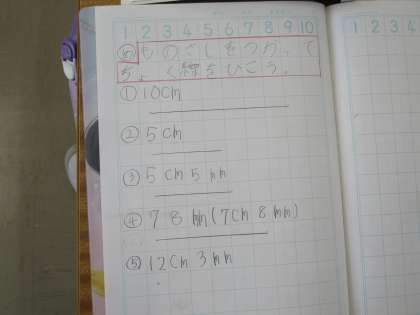 1 2 3 4 5 6 7 8 9 10
め ものさしをつかって
ちょく線をひこう。
① 10cm
② 5cm
③ 5cm5mm
④ 78mm(7cm8mm)
⑤ 12cm3mm
1 2 3 4